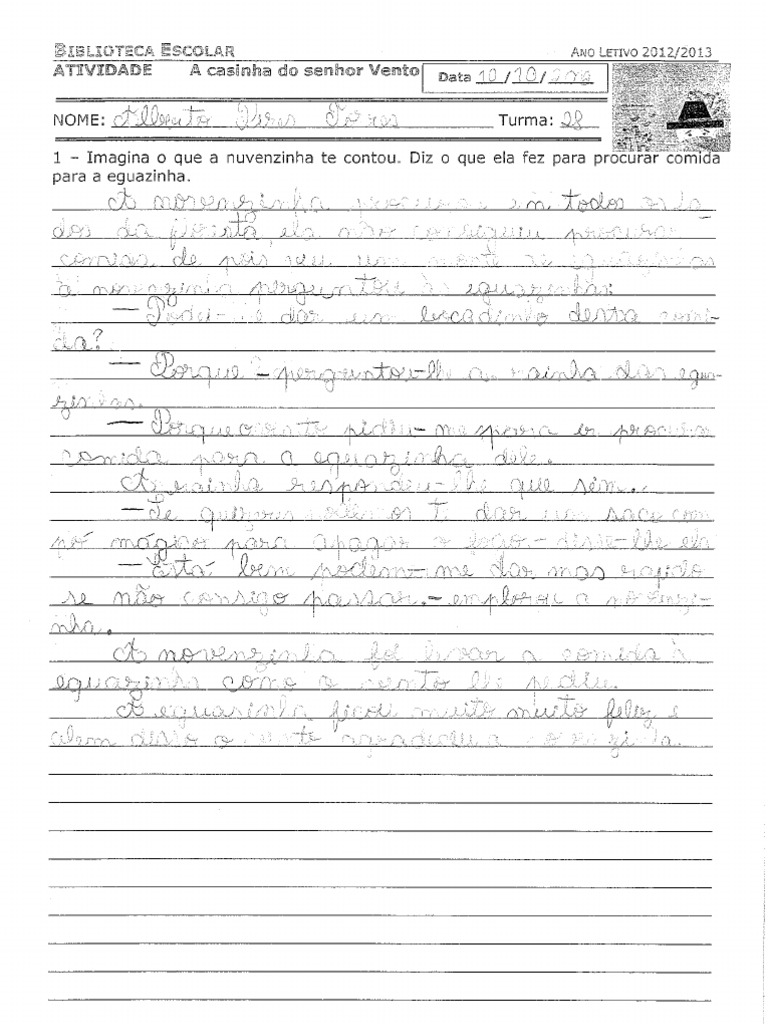 BIBLIOTECA ESCOLAR
ANO LETIVO 2012/2013
ATIVIDADE A casinha do senhor Vento
Data 10/10/
NOME: Alberto Pires Torres Turma: 28
1 – Imagina o que a nuvenzinha te contou. Diz o que ela fez para procurar comida
para a eguazinha.
A novenzinha procurar em todos os la-
dos da floresta, ela não conseguiu procurar
comida de pois veu um monte de eguazinhas
a novenzinha perguntou às eguazinhas:
— dar um bocadinho desta comi-
da?
— Porque – perguntou-lhe a rainha das egua-
zinhas.
— Porque o vento pediu-me para ir procurar
comida para a eguazinha dele.
A rainha respondeu-lhe que sim.
— Se ti dar um saco com
pó mágico para apagar o fogo – disse-lhe ela
— Está bem podem-me dar mas rapido
se não consigo passar. – emplorou a novenzi-
nha.
A novenzinha foi livar a comida à
eguazinha como o vento lhe pediu.
A eguasinha ficou muito muito feliz e
alem disso o vento agradiceu a novenzinha.